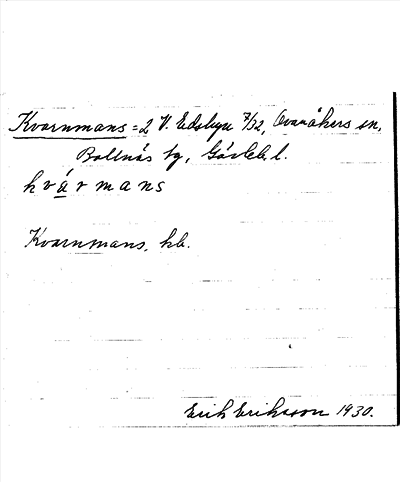 Kvarnmans = 2 V. Edsbyn 7/32, Ovanåkers sn,
Bollnäs tg, Gävleb. l.
kvá̲rmans
Kvarnmans, hb.
Erik Eriksson 1930.